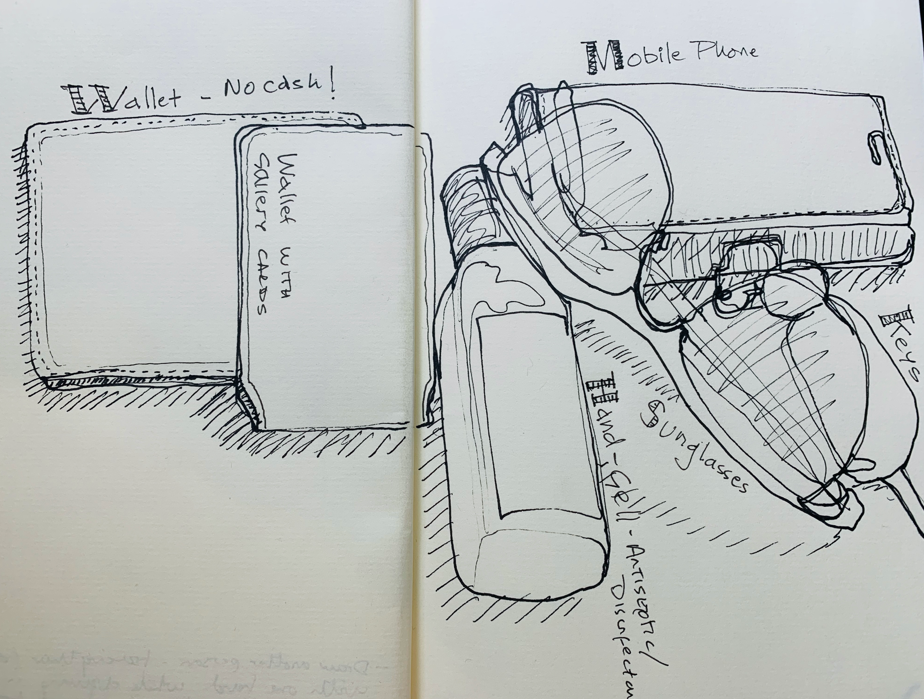 Wallet - No cash!
Wallet with
Gallery cards
Mobile Phone
Keys
Sunglasses
Hand-Gell - Antiseptic/
Disinfectan